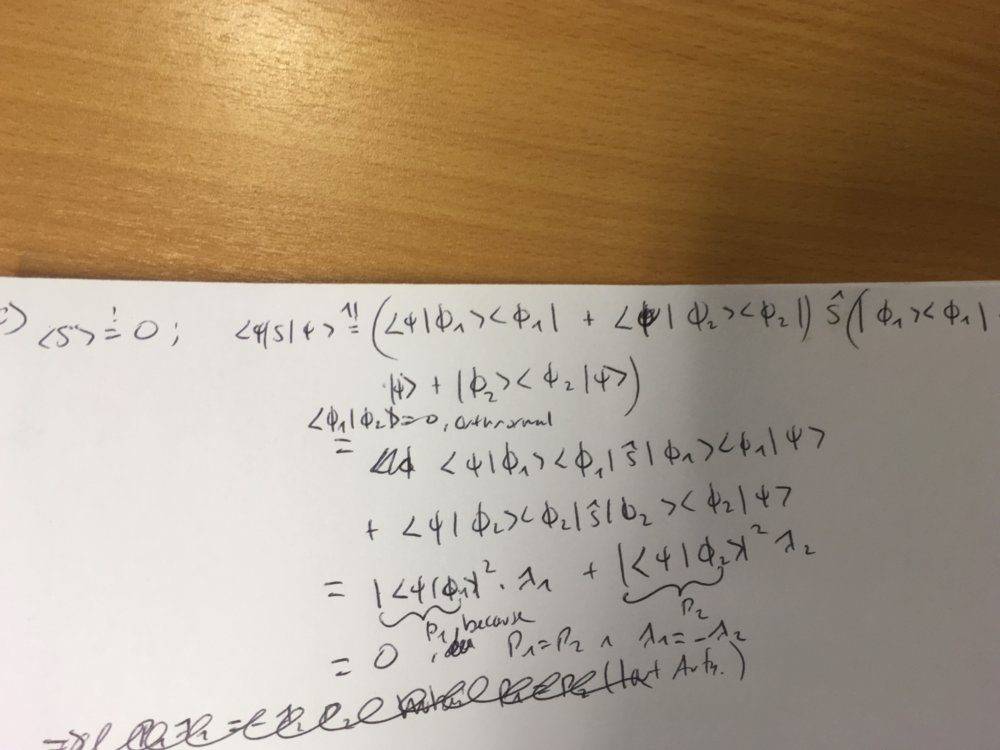 c) <S> =! 0 ; <ψ|S|ψ> =^{1} (<ψ|ϕ₁><ϕ₁| + <ψ|ϕ₂><ϕ₂|) Ŝ (|ϕ₁><ϕ₁|
|ψ> + |ϕ₂><ϕ₂|ψ>)
<ϕ₁|ϕ₂>=0, orthonormal
= <ψ|ϕ₁><ϕ₁|Ŝ|ϕ₁><ϕ₁|ψ>
+ <ψ|ϕ₂><ϕ₂|Ŝ|ϕ₂><ϕ₂|ψ>
= |<ψ|ϕ₁>|² · λ₁ + |<ψ|ϕ₂>|² λ₂
P₁ P₂
= 0, because P₁=P₂ ∧ λ₁=-λ₂